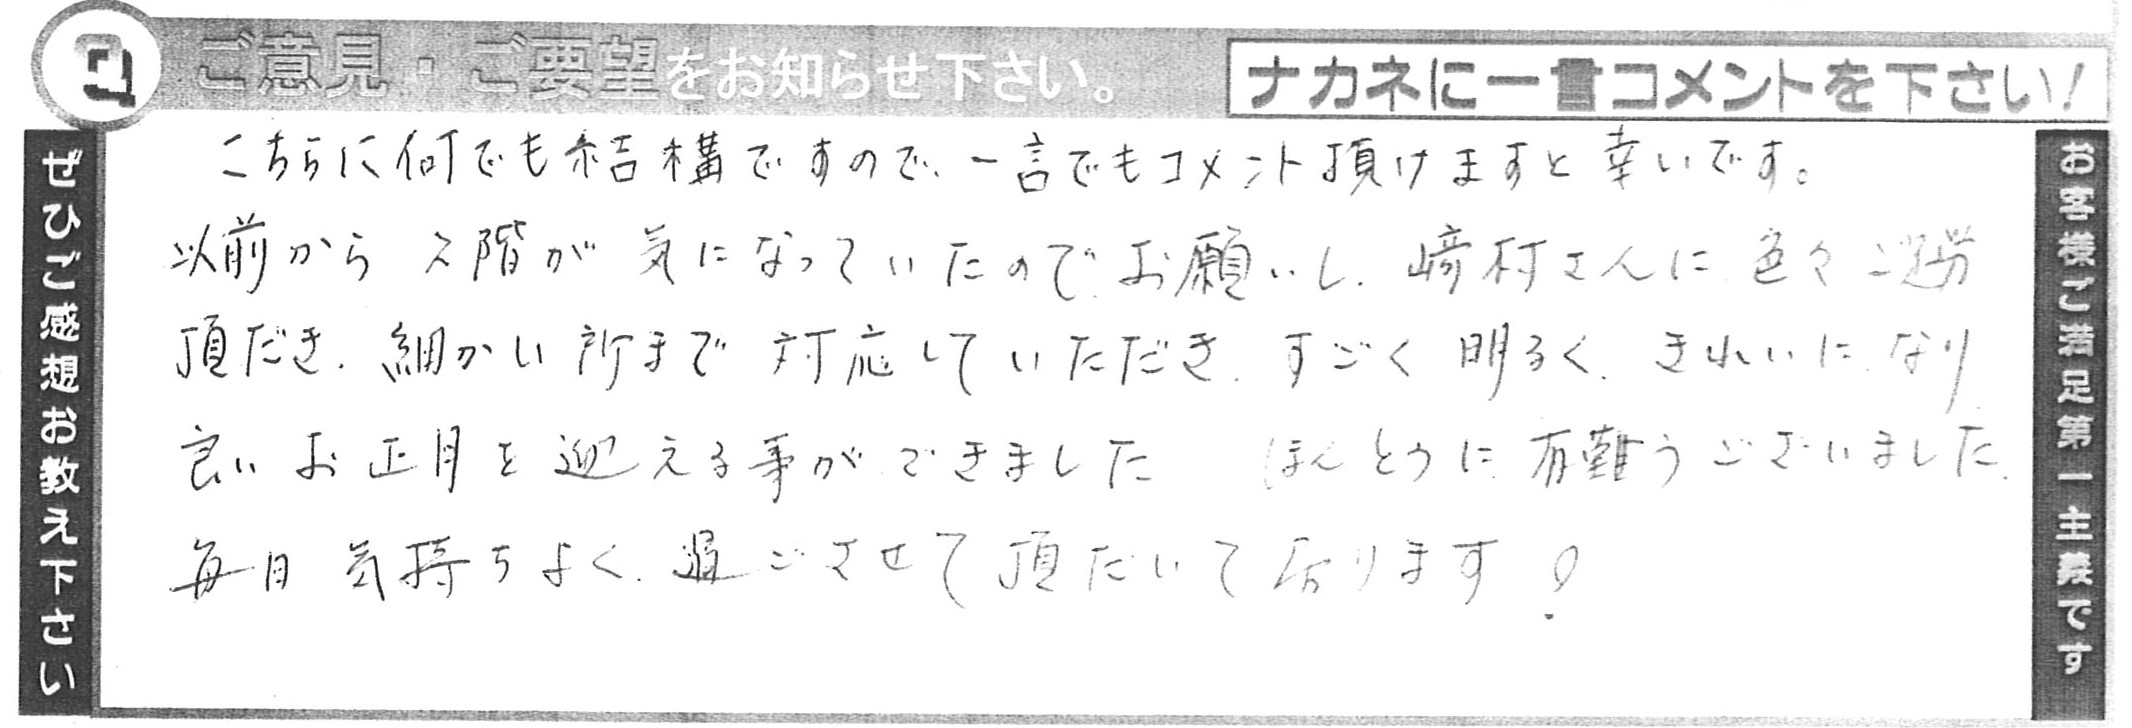 ご意見・ご要望をお知らせ下さい。
ナカネに一言コメントを下さい!
ぜひご感想お教え下さい
こちらに何でも結構ですので、一言でもコメント頂けますと幸いです。
以前から 2階が 気になっていたので お願いし、﨑村さんに 色々 ご
頂だき、細かい所まで 対応して いただき、すごく 明るく、きれいに なり
良い お正月を 迎える事が できました ほんとうに 有難うございました、
毎日 気持ちよく、過ごさせて 頂だいて 居ります!
お客様ご満足第一主義です